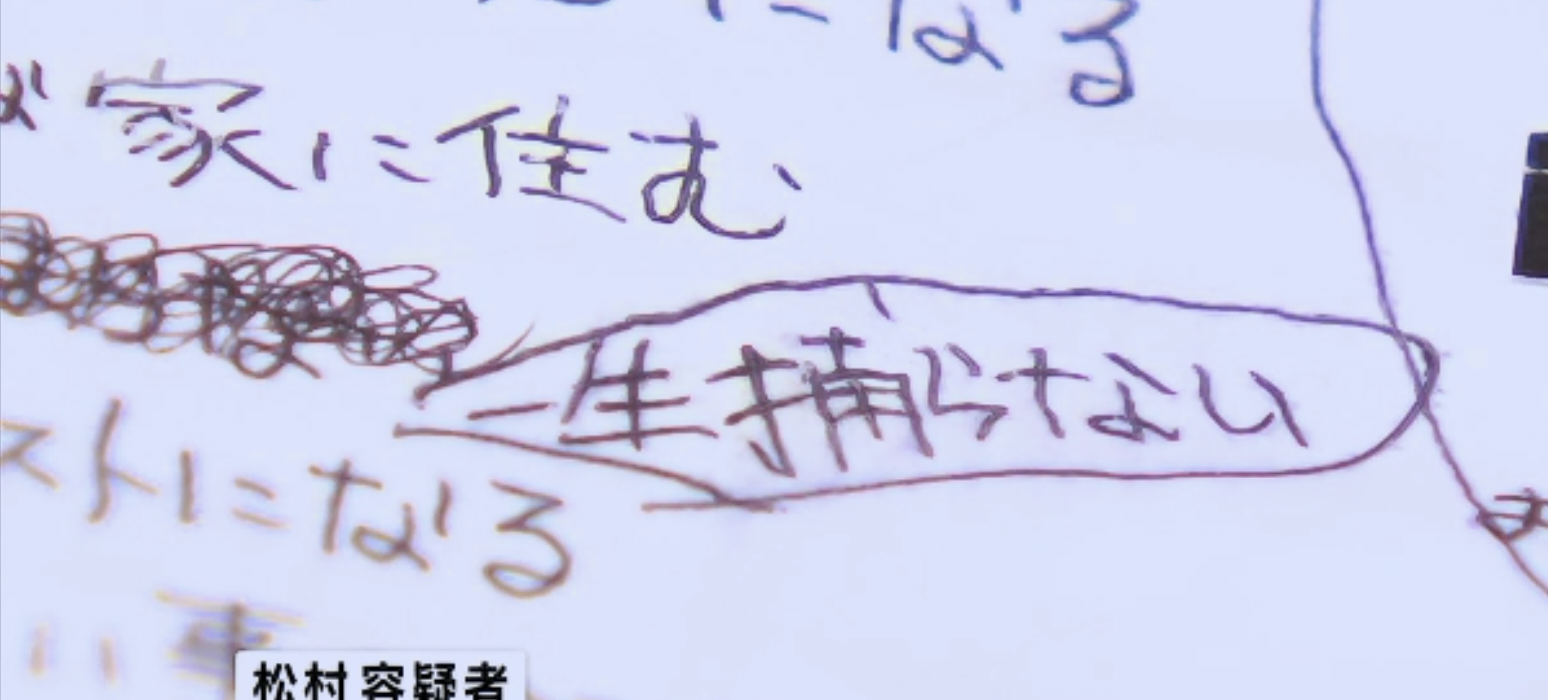 になる
家に住む
一生捕らない
ストになる
い事
松村容疑者